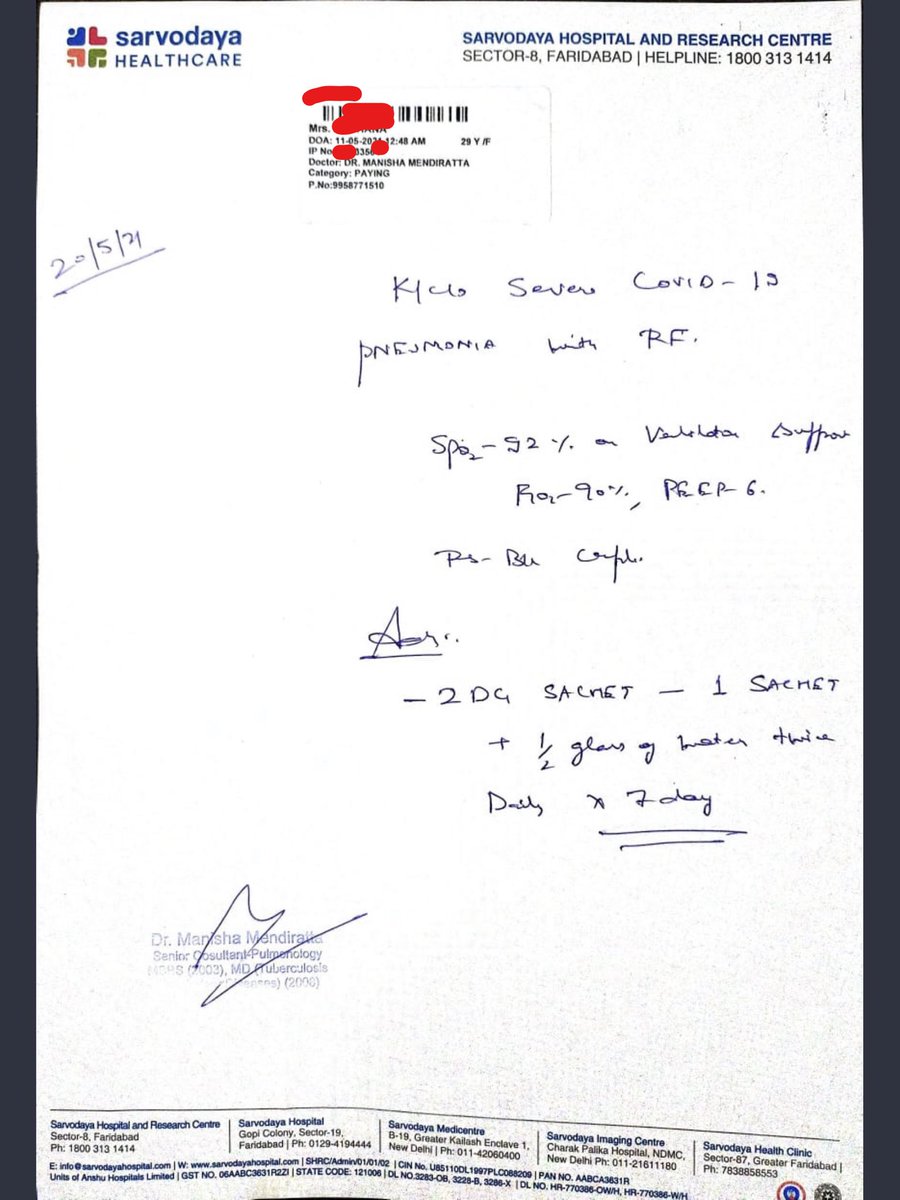 sarvodaya
HEALTHCARE
SARVODAYA HOSPITAL AND RESEARCH CENTRE
SECTOR-8, FARIDABAD | HELPLINE: 1800 313 1414
Mrs.
DOA: 11-05-20 12:48 AM 29 Y /F
IP No
Doctor: DR. MANISHA MENDIRATTA
Category: PAYING
P.No:9958771510
20/5/21
K/c/o Severe COVID-19
PNEUMONIA with RF.
SpO2-92% on Ventilator Support
FiO2-90%, PEEP-6.
Adv.
- 2DG SACHET - 1 SACHET
+ 1/2 glass of water twice
Daily x 7 day
Dr. Manisha Mendiratta
Senior Cosultant-Pulmonology
(2003), MD (Tuberculosis
(2008)
Sarvodaya Hospital and Research Centre
Sector-8, Faridabad
Ph: 1800 313 1414
Sarvodaya Hospital
Gopi Colony, Sector-19,
Faridabad | Ph: 0129-4194444
Sarvodaya Medicentre
B-19, Greater Kailash Enclave 1,
New Delhi | Ph: 011-42060400
Sarvodaya Imaging Centre
Charak Palika Hospital, NDMC,
New Delhi Ph: 011-21611180
Sarvodaya Health Clinic
Sector-87, Greater Faridabad |
Ph: 7838858553
E: info@sarvodayahospital.com | W: www.sarvodayahospital.com | SHRC/Admin/01/01/02 | CIN No. U85110DL1997PLC088209 | PAN NO. AABCA3631R
Units of Anshu Hospitals Limited | GST NO. 06AABC3631R2ZI | STATE CODE: 121006 | DL NO.3283-OB, 3228-B, 3286-X | DL NO. HR-770386-OW/H, HR-770386-W/H